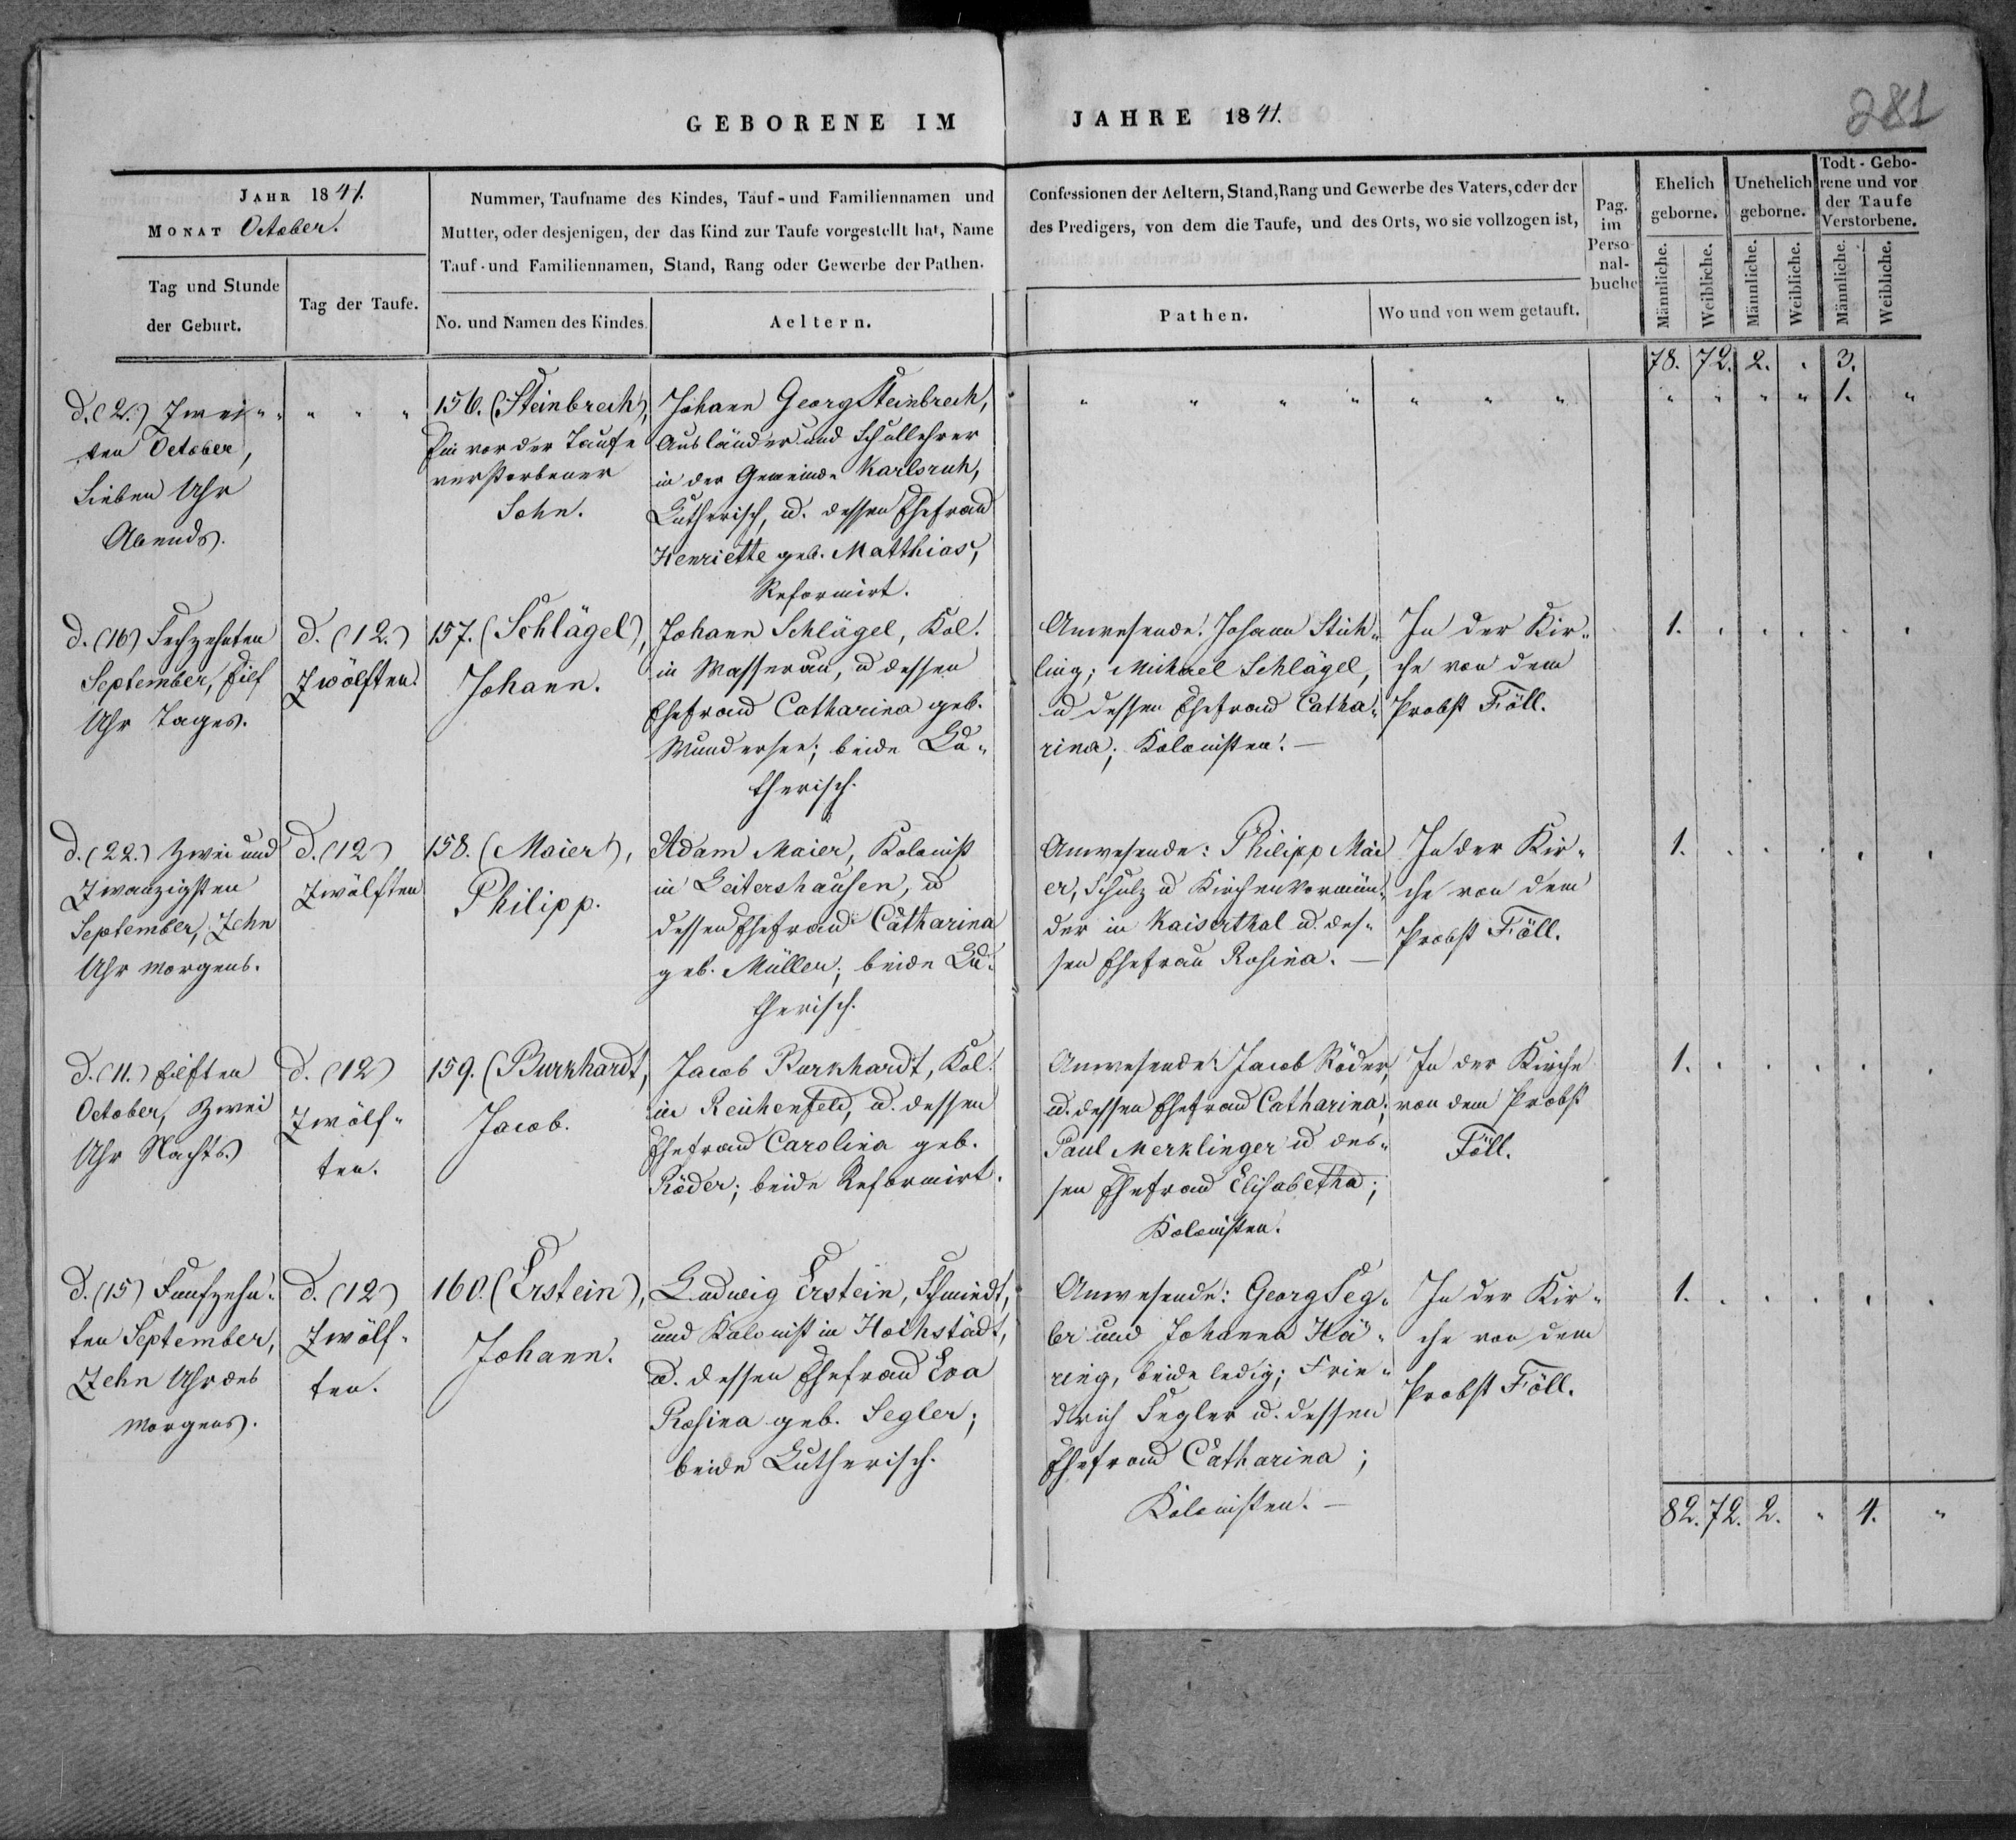 GEBORENE IM JAHRE 1841.
281
JAHR 1841.
MONAT October.
Tag und Stunde
der Geburt.
Tag der Taufe.
Nummer, Taufname des Kindes, Tauf- und Familiennamen und
Mutter, oder desjenigen, der das Kind zur Taufe vorgestellt hat, Name
Tauf- und Familiennamen, Stand, Rang oder Gewerbe der Pathen.
No. und Namen des Kindes.
Aeltern.
Confessionen der Aeltern, Stand, Rang und Gewerbe des Vaters, oder der
des Predigers, von dem die Taufe, und des Orts, wo sie vollzogen ist,
Pathen.
Wo und von wem getauft.
Pag.
im
Perso-
nal-
buche
Ehelich
geborne.
Unehelich
geborne.
Todt-Gebo-
rene und vor
der Taufe
Verstorbene.
Männliche.
Weibliche.
Männliche.
Weibliche.
Männliche.
Weibliche.
78. 72. 2. . 3.
d. (2.) Zwei-
ten October,
Sieben Uhr
Abends.
" " "
156. (Steinbrech),
Ein vor der Taufe
verstorbener
Sohn.
Johann Georg Steinbrech,
Ausländer und Schullehrer
in der Gemeinde Karlsruh,
Lutherisch, u. dessen Ehefrau
Henriette geb. Matthias,
Reformirt.
" " " " " " "
" " " " 1. "
d. (16) Sechzehnten
September, Eilf
Uhr Tages.
d. (12.)
Zwölften.
157. (Schlägel),
Johann.
Johann Schlägel, Kol.
in Wasserau, u dessen
Ehefrau Catharina geb.
Mundersee; beide Lu-
therisch.
Anwesende: Johann Stich-
ling; Michael Schlägel,
u dessen Ehefrau Catha-
rina; Kolonisten. —
In der Kir-
che von dem
Probst Föll.
1. . . . . .
d. (22.) Zwei und
Zwanzigsten
September, Zehn
Uhr Morgens.
d. (12)
Zwölften
158. (Maier),
Philipp.
Adam Maier, Kolonist
in Leitershausen, u
dessen Ehefrau Catharina
geb. Müller; beide Lu-
therisch.
Anwesende: Philipp Mai
er, Schulz u Kirchenvormün-
der in Kaiserthal u. des-
sen Ehefrau Rosina. —
In der Kir-
che von dem
Probst Föll.
1. . . . . .
d. (11.) Eilften
October, Zwei
Uhr Nachts.
d. (12)
Zwölf-
ten.
159. (Burkhardt,
Jacob.
Jacob Burkhardt, Kol.
in Reichenfeld, u. dessen
Ehefrau Carolina geb.
Röder; beide Reformirt.
Anwesende: Jacob Röder,
u. dessen Ehefrau Catharina;
Paul Merklinger u des-
sen Ehefrau Elisabetha;
Kolonisten.
In der Kirche
von dem Probst
Föll.
1. . . . . .
d. (15) Funfzehn-
ten September,
Zehn Uhr des
Morgens.
d. (12)
Zwölf-
ten.
160. (Erstein),
Johann.
Ludwig Erstein, Schmiedt,
und Kolonist in Hochstädt,
u. dessen Ehefrau Eva
Rosina geb. Segler;
beide Lutherisch.
Anwesende: Georg Seg-
ler und Johanna Hä-
ring, beide ledig; Frie-
drich Segler u. dessen
Ehefrau Catharina;
Kolonisten. —
In der Kir-
che von dem
Probst Föll.
1. . . . . .
82. 72. 2. " 4. "